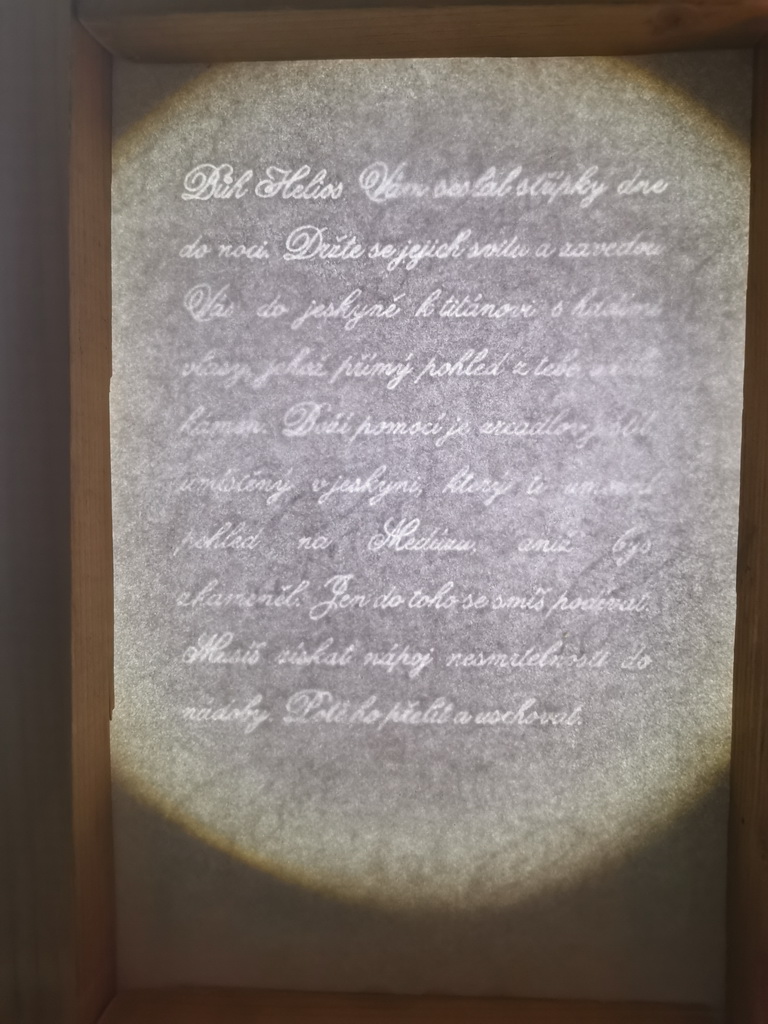 Bůh Helios Vám seslal střípky dne
do noci. Držte se jejich svitu a zavedou
Vás do jeskyně k titánovi s hadími
vlasy, jehož přímý pohled z tebe udělá
kámen. Boží pomocí je zrcadlový štít
umístěný v jeskyni, který ti umožní
pohled na Medúzu, aniž bys
zkameněl. Jen do toho se smíš podívat.
Musíš získat nápoj nesmrtelnosti do
nádoby. Poté ho přelít a uschovat.